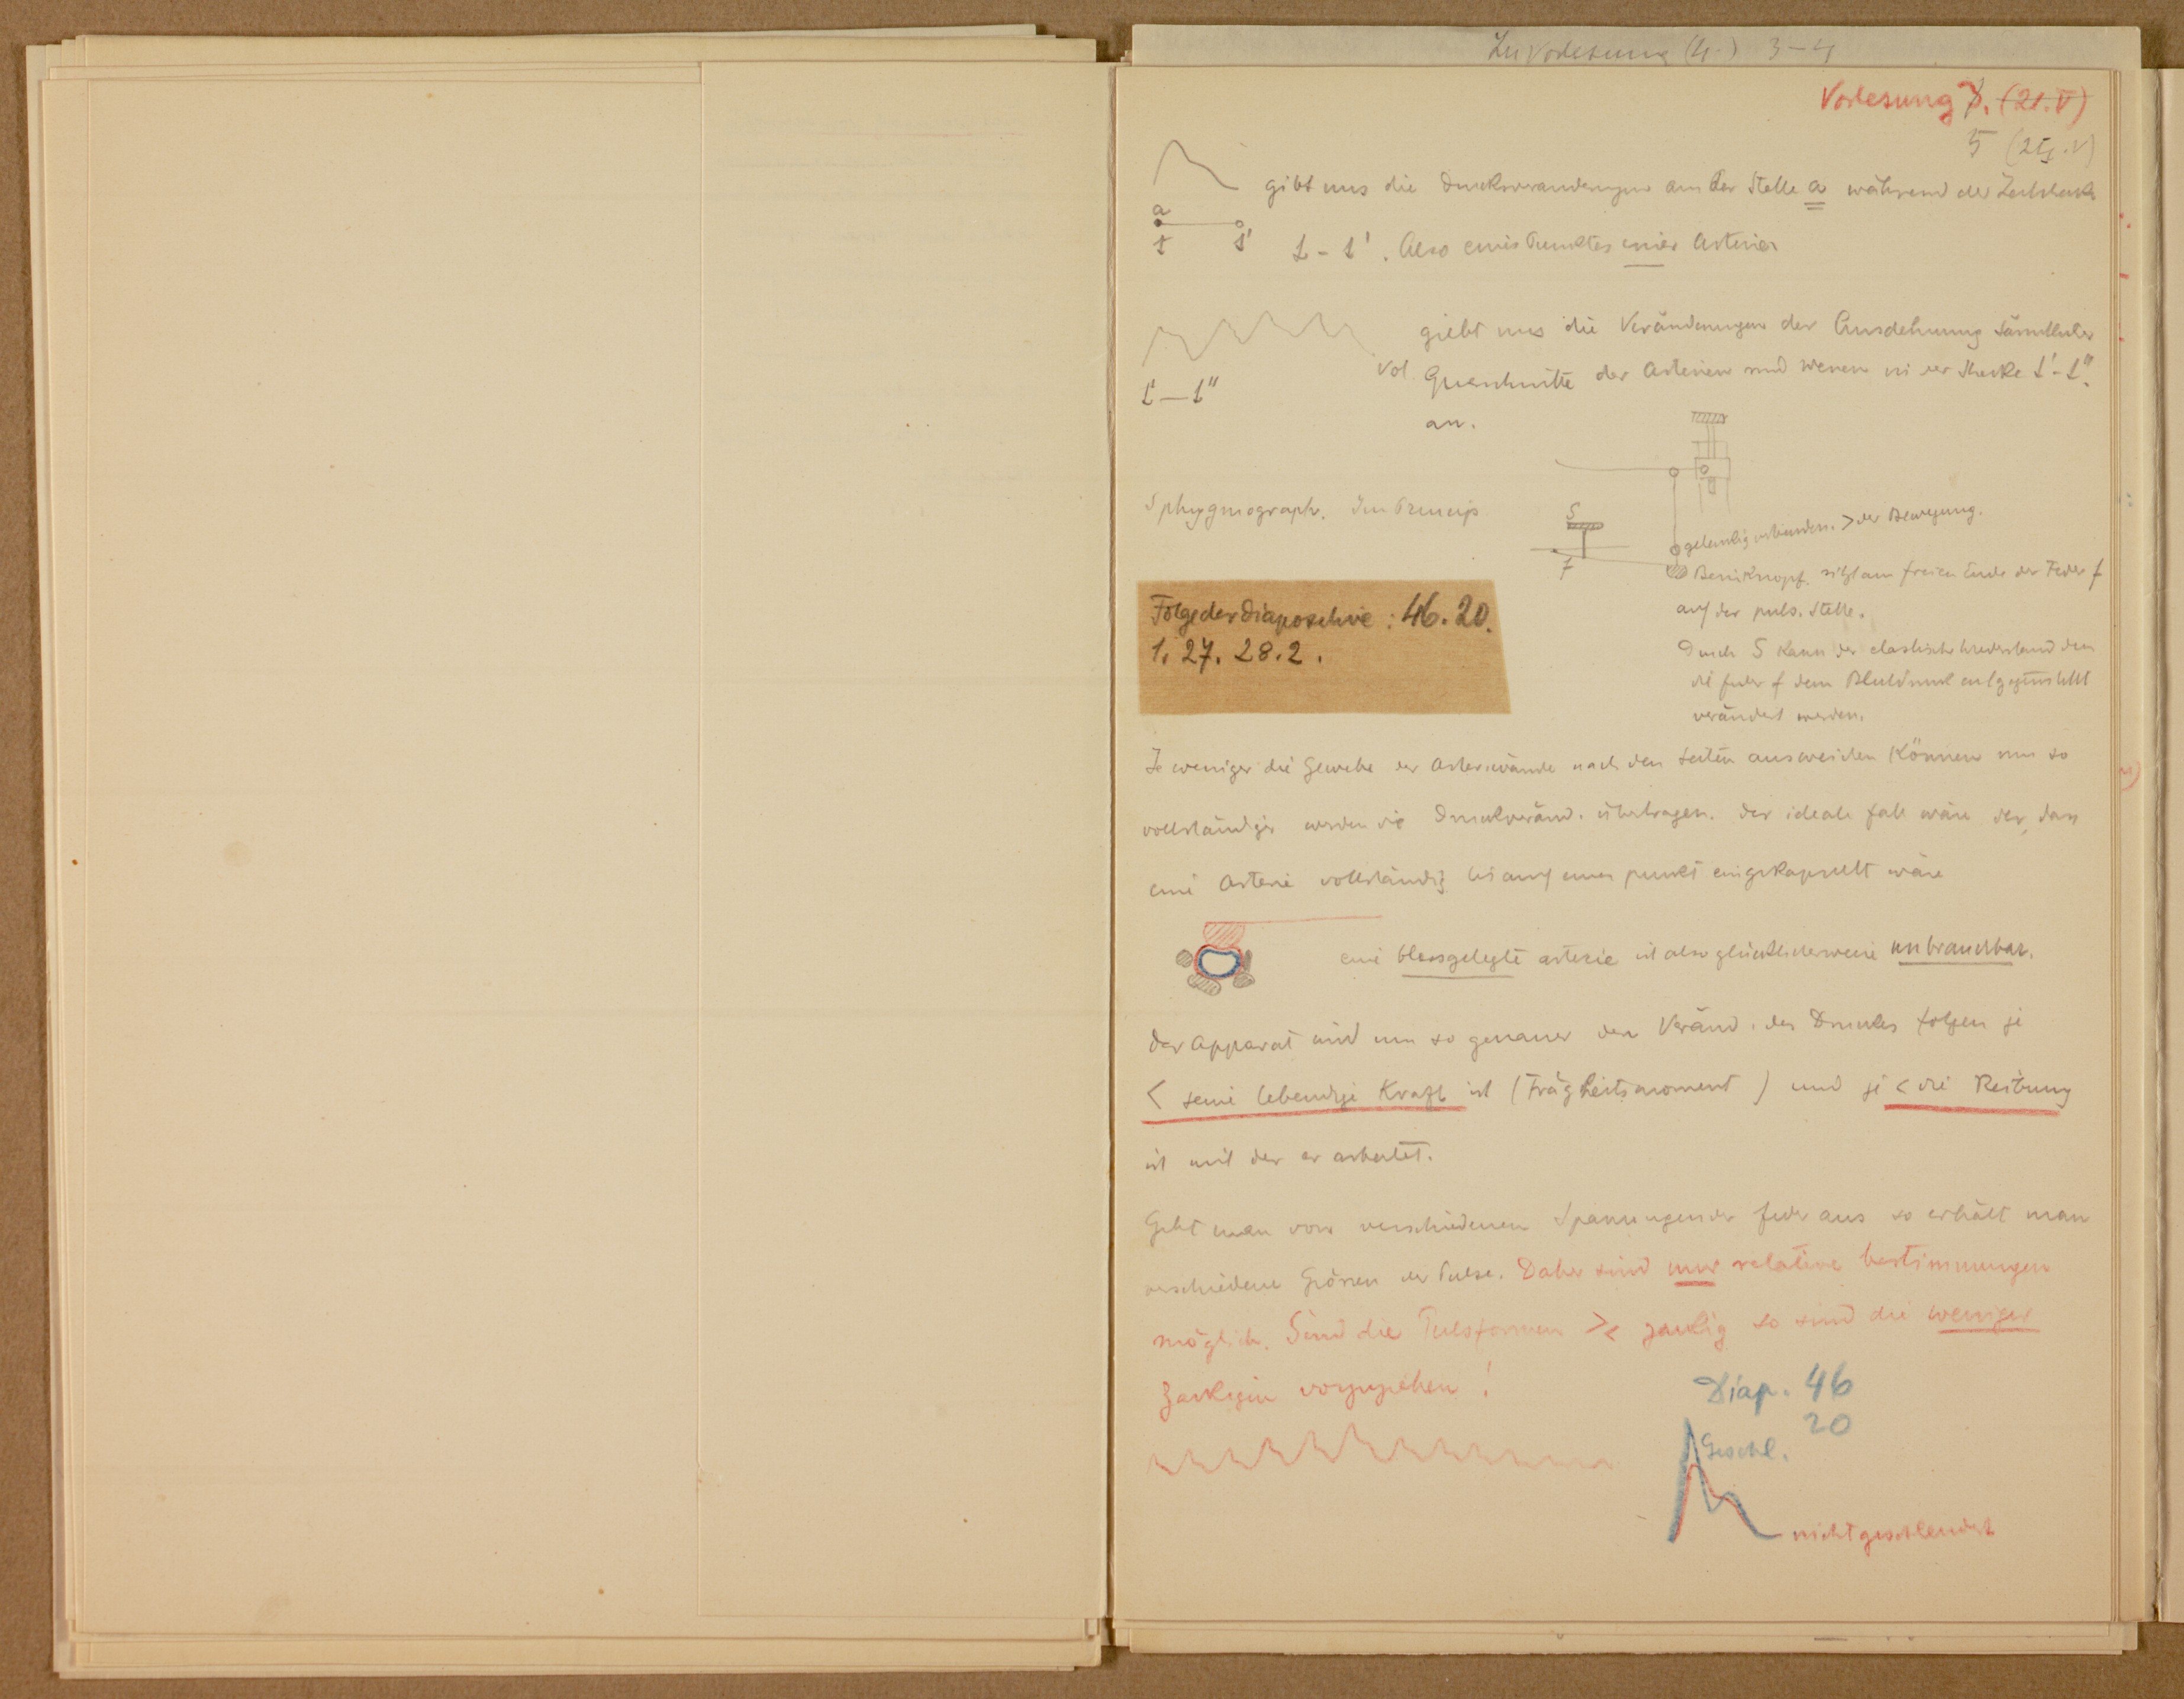 Zu Vorlesung (4.) 3-4
Vorlesung 3. (21.V)
5 (25.V)
gibt uns die Druckveränderungen an der Stelle a während der Zeitstrecke
a
t t'
t - t'. Also eines Punktes einer Arterien
giebt uns die Veränderungen der Ausdehnung sämtlicher
Vol. Querschnitte der Arterien und Venen in der Strecke t'-t''.
t'—t''
an.
Sphygmograph. Im Princip
S
f
gelenkig verbunden. > der Bewegung.
Beinknopf. sitzt am freien Ende der Feder f
auf der puls. Stelle.
Durch S kann der elastische Widerstand den
die Feder f dem Blutdruck entgegenstellt
verändert werden.
Folge der Diapositive: 46. 20.
1. 27. 28. 2.
Je weniger die Gewebe der Arterienwände nach den Seiten ausweichen können um so
vollständiger werden die Druckveränd. übertragen. Der ideale Fall wäre der, dass
eine Arterie vollständig bis auf einen punkt eingekapselt wäre
eine blossgelegte arterie ist also glücklicherweise unbrauchbar.
Der Apparat wird um so genauer den Veränd. des Druckes folgen je
< seine lebendige Kraft ist (Trägheitsmoment) und je < die Reibung
ist mit der er arbeitet.
Geht man von verschiedenen Spannungen der Feder aus so erhält man
verschiedene Grössen der Pulse. Daher sind nur relative bestimmungen
möglich. Sind die Pulsformen >< zackig so sind die weniger
zackigen vorzuziehen!
Diap. 46
20
Geschl.
nicht geschleudert